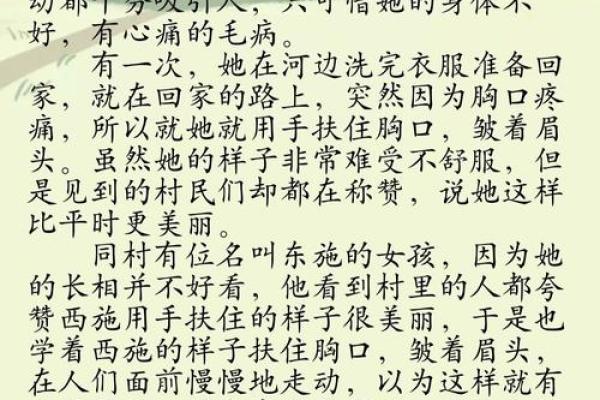 动都十分吸引人，只可惜她的身体不
好，有心痛的毛病。
有一次，她在河边洗完衣服准备回
家，就在回家的路上，突然因为胸口疼
痛，所以就她就用手扶住胸口，皱着眉
头。虽然她的样子非常难受不舒服，但
是见到的村民们却都在称赞，说她这样
比平时更美丽。
同村有位名叫东施的女孩，因为她
的长相并不好看，他看到村里的人都夸
赞西施用手扶住的样子很美丽，于是也
学着西施的样子扶住胸口，皱着眉头，
在人们面前慢慢地走动，以为这样就有